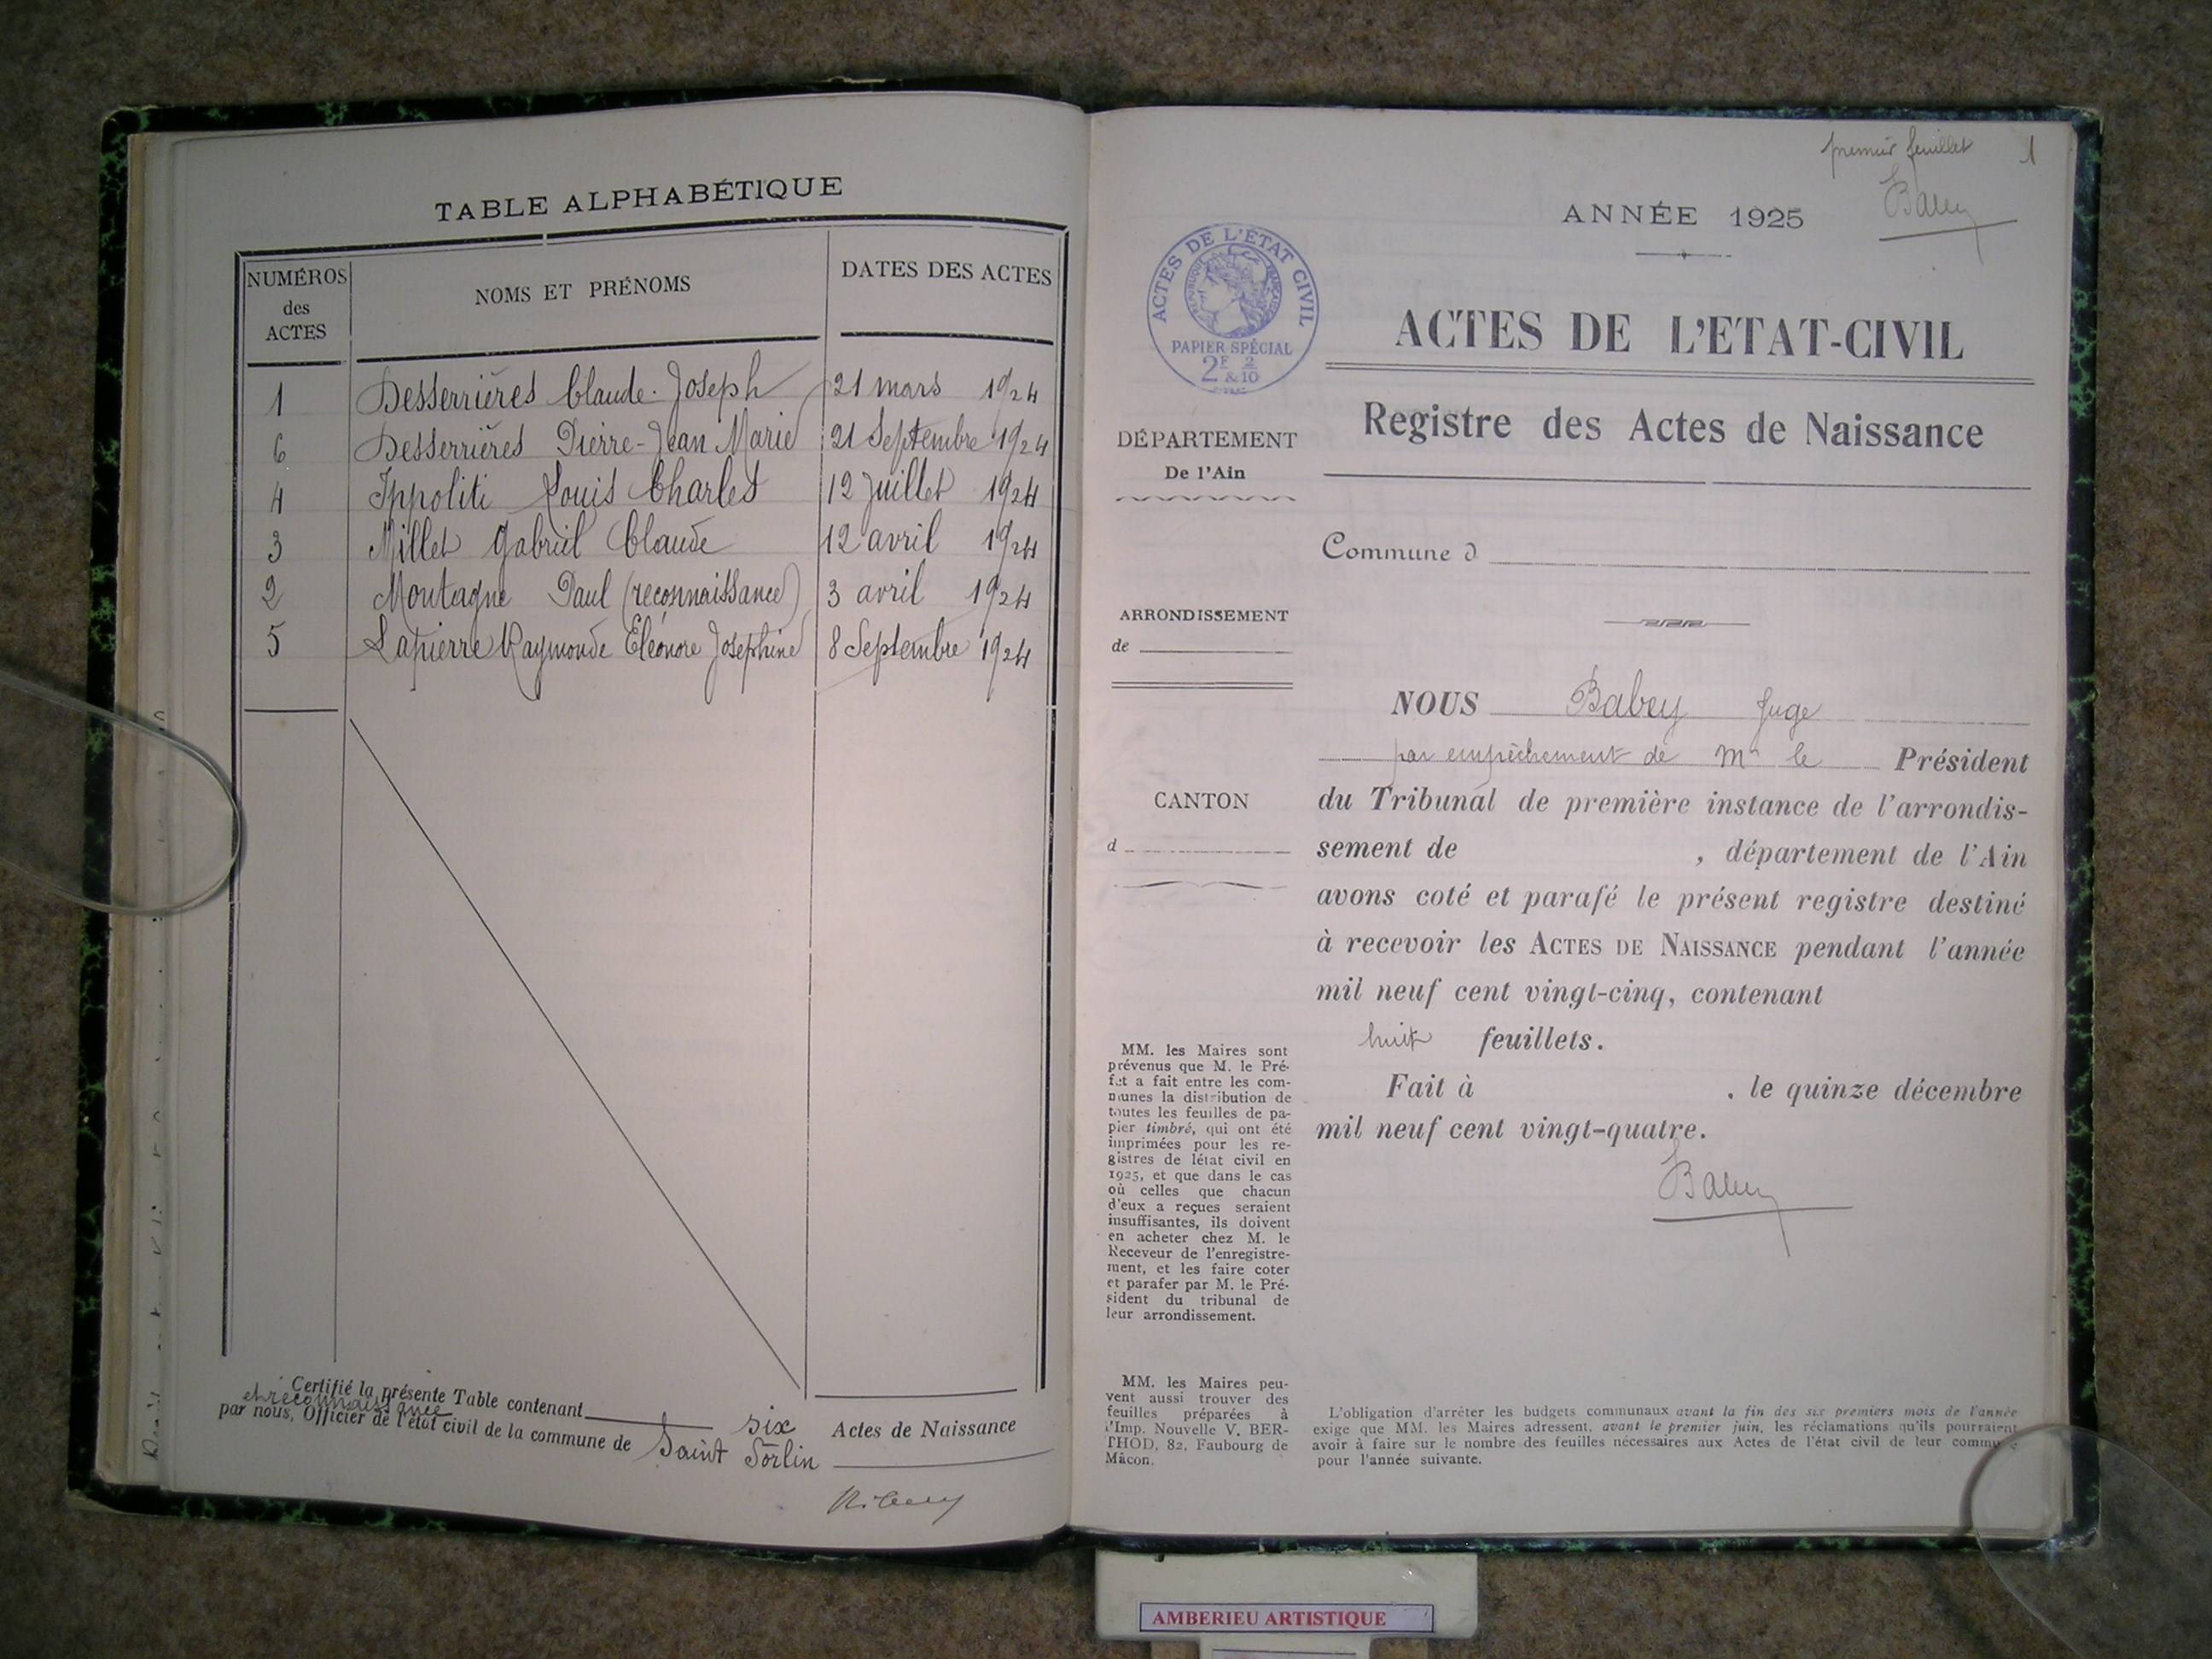 TABLE ALPHABÉTIQUE
NUMÉROS des ACTES
NOMS ET PRÉNOMS
DATES DES ACTES
1 Desserrières Claude-Joseph 21 mars 1924
6 Desserrières Pierre-Jean Marie 21 Septembre 1924
4 Ippoliti Louis Charles 12 Juillet 1924
3 Millet Gabriel Claude 12 avril 1924
2 Montagne Paul (reconnaissance) 3 avril 1924
5 Lapierre Raymonde Eléonore Joséphine 8 Septembre 1924
Certifié la présente Table contenant six Actes de Naissance
et reconnaissance
par nous, Officier de l'état civil de la commune de Saint Sorlin
premier feuillet 1
Babey
ANNÉE 1925
ACTES DE L'ÉTAT CIVIL
RÉPUBLIQUE FRANÇAISE
PAPIER SPÉCIAL
2F 2
&10
ACTES DE L'ETAT-CIVIL
Registre des Actes de Naissance
DÉPARTEMENT
De l'Ain
Commune d
ARRONDISSEMENT
de
CANTON
d
NOUS Babey Juge
par empêchement de Mr le Président
du Tribunal de première instance de l'arrondis-
sement de , département de l'Ain
avons coté et parafé le présent registre destiné
à recevoir les ACTES DE NAISSANCE pendant l'année
mil neuf cent vingt-cinq, contenant
huit feuillets.
Fait à , le quinze décembre
mil neuf cent vingt-quatre.
Babey
MM. les Maires sont
prévenus que M. le Pré-
fet a fait entre les com-
munes la distribution de
toutes les feuilles de pa-
pier timbré, qui ont été
imprimées pour les re-
gistres de létat civil en
1925, et que dans le cas
où celles que chacun
d'eux a reçues seraient
insuffisantes, ils doivent
en acheter chez M. le
Receveur de l'enregistre-
ment, et les faire coter
et parafer par M. le Pré-
sident du tribunal de
leur arrondissement.
MM. les Maires peu-
vent aussi trouver des
feuilles préparées à
l'Imp. Nouvelle V. BER-
THOD, 82, Faubourg de
Mâcon.
L'obligation d'arrêter les budgets communaux avant la fin des six premiers mois de l'année
exige que MM. les Maires adressent, avant le premier juin, les réclamations qu'ils pourraient
avoir à faire sur le nombre des feuilles nécessaires aux Actes de l'état civil de leur commune
pour l'année suivante.
AMBERIEU ARTISTIQUE